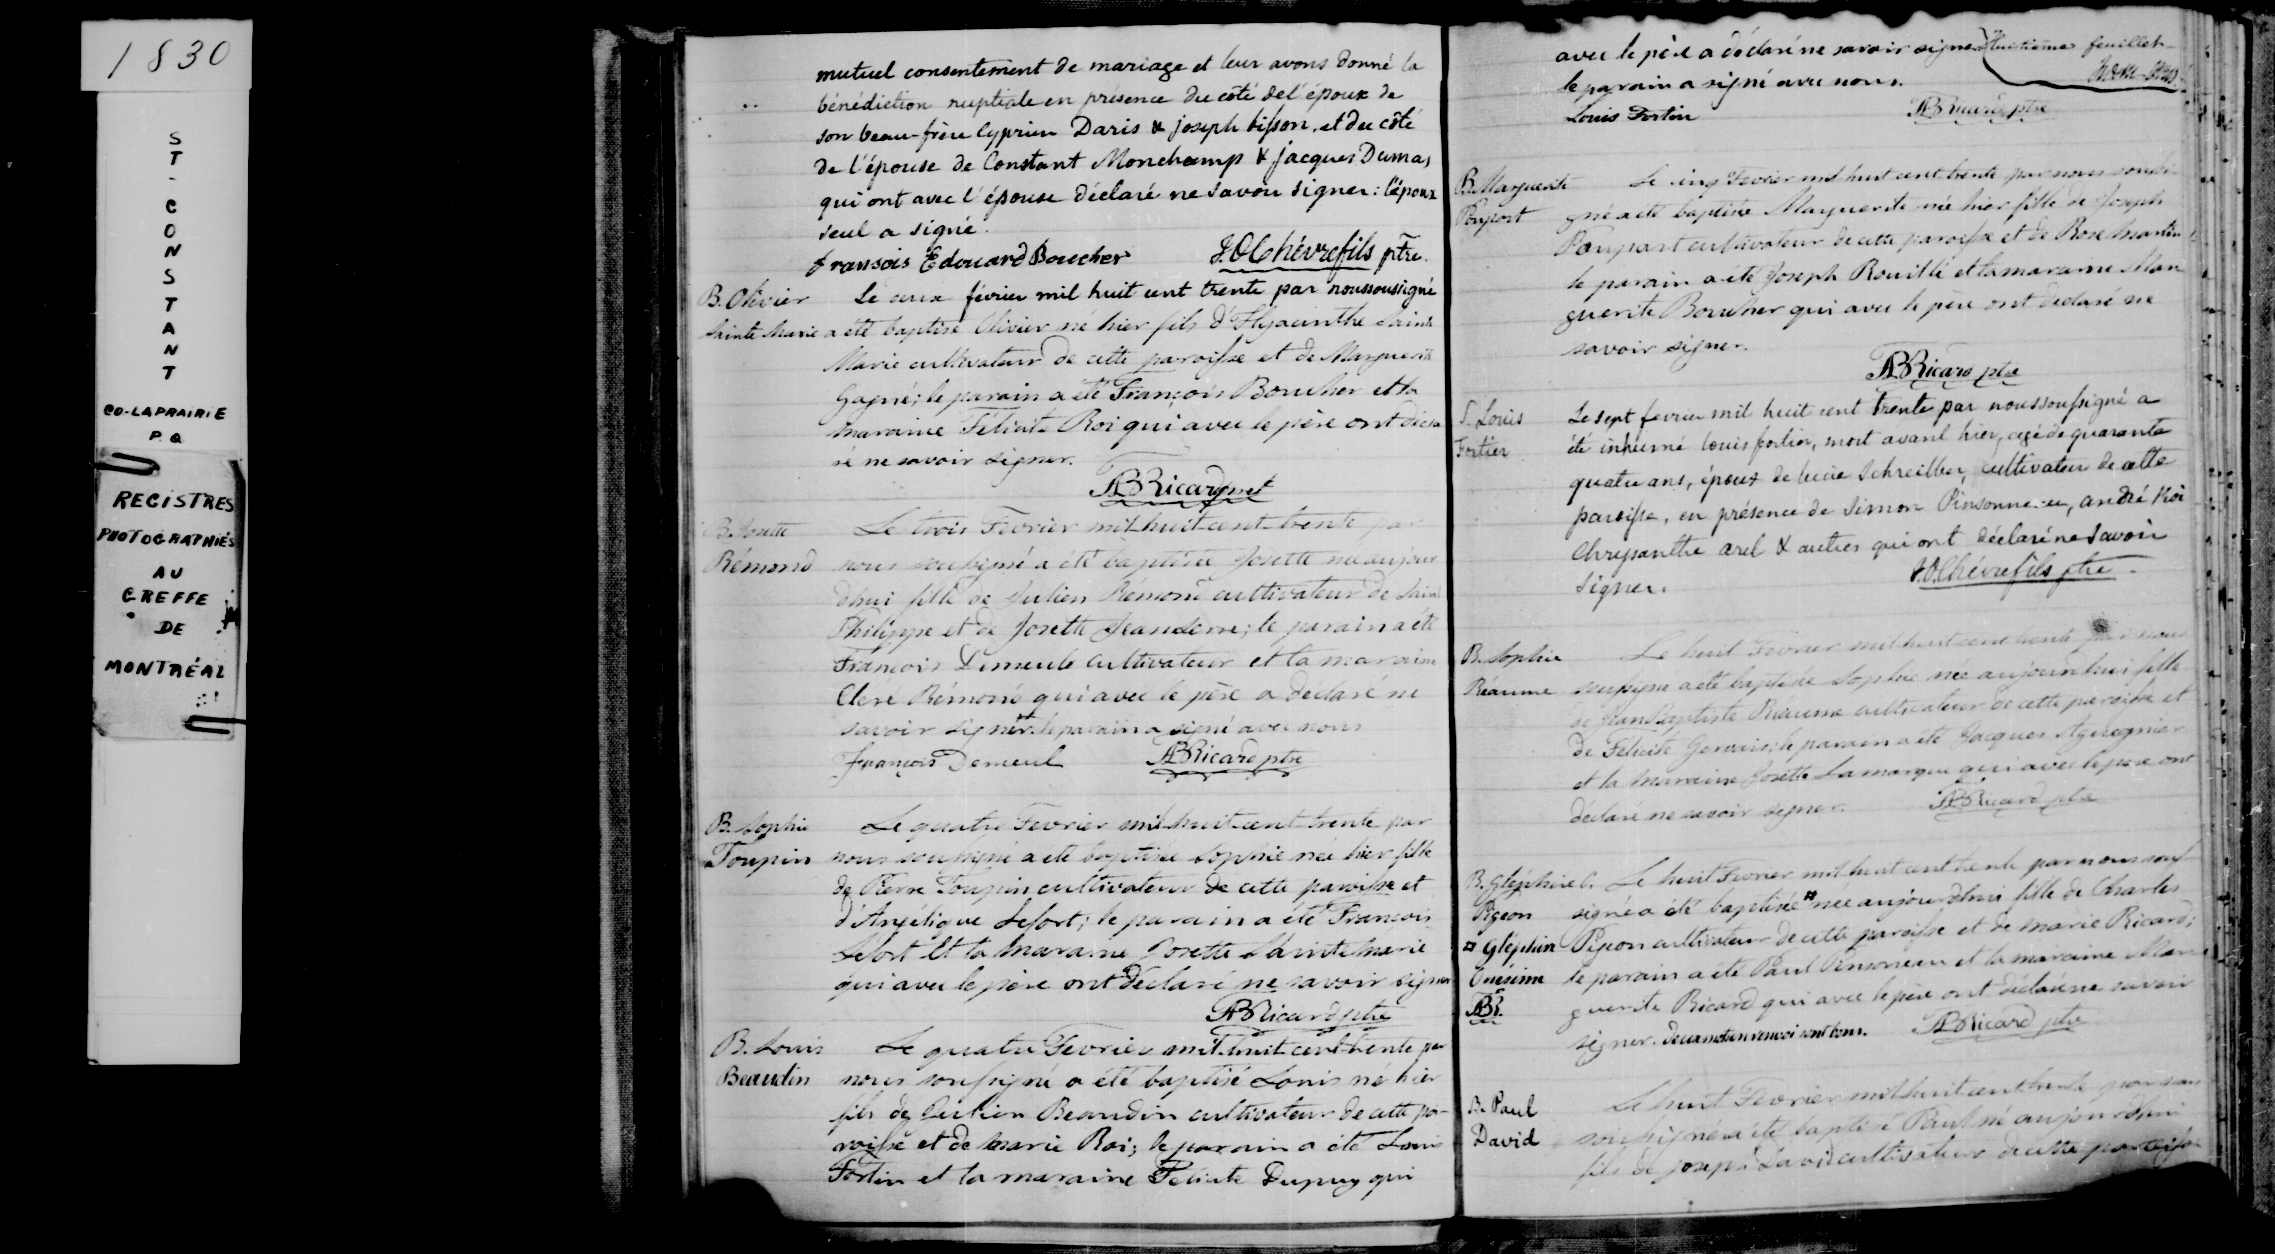 1830
ST-CONSTANT
CO-LAPRAIRIE
P.Q
REGISTRES
PHOTOGRAPHIÉS
AU
GREFFE
DE
MONTRÉAL
mutuel consentement de mariage et leur avons donné la
bénédiction nuptiale en présence du côté de l'époux de
son beau-frère Cyprien Daris & joseph bisson, et du côté
de l'épouse de Constant Monchamp & jacques Dumas
qui ont avec l'épouse déclaré ne savoir signer: l'époux
seul a signé.
fransois Edouard Boucher J.O. Chèvrefils ptre.
B. Olivier
Sainte Marie
Le deux février mil huit cent trente par nous soussigné
a été baptisé Olivier né hier fils d'Hyacinthe Sainte
Marie cultivateur de cette paroisse et de Marguerite
Gagné; le parain a été François Boucher et la
maraine Félicité Roi qui avec le père ont décla
ré ne savoir signer.
ABRicard ptre
B. Josette
Rémond
Le trois Fevrier mil huit cent trente par
nous soussigné a été baptisée Josette née aujour
dhui fille de Julien Rémond cultivateur de Saint
Philippe et de Josette ; le parain a été
François cultivateur et la maraine
Rémond qui avec le père a declaré ne
savoir signer. le parain a signé avec nous
François Demeul ABRicard ptre
B. Sophie
Toupin
Le quatre Fevrier mil huit cent trente par
nous soussigné a été baptisée Sophie née hier fille
de Pierre Toupin cultivateur de cette paroisse et
d'Angélique Lefort; le parain a été François
Lefort et la maraine Josette Sainte Marie
qui avec le père ont déclaré ne savoir signer
ABRicard ptre
B. Louis
Beaudin
Le quatre Fevrier mil huit cent trente par
nous soussigné a été baptisé Louis né hier
fils de Julien Beaudin cultivateur de cette pa-
roisse et de Marie Roi; le parain a été Louis
Fortin et la maraine Félicité Dupuy qui
avec le père a déclaré ne savoir signer
le parain a signé avec nous.
Louis Fortin ABRicard ptre
Huitième feuillet
B. Marguerite
Poupart
Le cinq Fevrier mil huit cent trente par nous soussi
gné a été baptisée Marguerite née hier fille de Joseph
Poupart cultivateur de cette paroisse et de Rose Martin
le parain a été Joseph Rouillé et la maraine Mar
guerite Boucher qui avec le père ont déclaré ne
savoir signer.
ABRicard ptre
S. Louis
Fortier
Le sept fevrier mil huit cent trente par nous soussigné a
été inhumé Louis fortier, mort avant hier, agé de quarante
quatre ans, époux de lucie Schreiller, cultivateur de cette
paroisse, en présence de Simon Pinsonneau, andré Roi
Chrysanthe arel & autres qui ont déclaré ne savoir
signer. J.O. Chèvrefils ptre
B. Sophie
Réaume
Le huit Fevrier mil huit cent trente par nous
soussigné a été baptisée Sophie née aujourdhui fille
de Jean Baptiste Réaume cultivateur de cette paroisse et
de Félicité Gervais; le parain a été Jacques
et la maraine Josette Lamarque qui avec le père ont
déclaré ne savoir signer. ABRicard ptre
B. Gléphire O.
Pigeon
¤ Gléphire
Onésime
ABR.
Le huit Fevrier mil huit cent trente par nous sous
signé a été baptisée ¤ née aujourdhui fille de Charles
Pigeon cultivateur de cette paroisse et de Marie Ricard;
le parain a été Paul Pinsoneau et la maraine Mar
guerite Ricard qui avec le père ont déclaré ne savoir
signer. deux mots en renvoi sont bons. ABRicard ptre
B. Paul
David
Le huit Fevrier mil huit cent trente par nous
soussigné a été baptisé Paul né aujourdhui
fils de joseph David cultivateur de cette paroisse